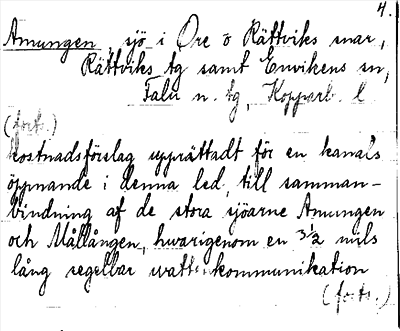 4.
Amungen, sjö i Ore o Rättviks snar,
Rättviks tg samt Envikens sn,
Falu n. tg, Kopparb. l
(forts.)
kostnadsförslag upprättadt för en kanals
öppnande i denna led, till samman-
bindning af de stora sjöarne Amungen
och Mållången, hwarigenom en 3½ mils
lång segelbar wattenkommunikation
(forts.)